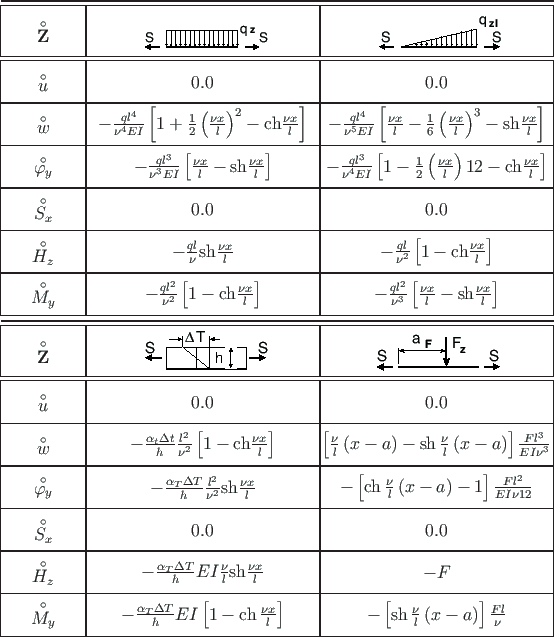 $\overset{\circ}{\mathbf{Z}}$ S q z S S q zl S
$\overset{\circ}{u}$ 0.0 0.0
$\overset{\circ}{w}$ $-\frac{ql^4}{\nu^4 EI}\left[1+\frac{1}{2}\left(\frac{\nu x}{l}\right)^2-\mathrm{ch}\frac{\nu x}{l}\right]$ $-\frac{ql^4}{\nu^5 EI}\left[\frac{\nu x}{l}-\frac{1}{6}\left(\frac{\nu x}{l}\right)^3-\mathrm{sh}\frac{\nu x}{l}\right]$
$\overset{\circ}{\varphi}_y$ $-\frac{ql^3}{\nu^3 EI}\left[\frac{\nu x}{l}-\mathrm{sh}\frac{\nu x}{l}\right]$ $-\frac{ql^3}{\nu^4 EI}\left[1-\frac{1}{2}\left(\frac{\nu x}{l}\right)12-\mathrm{ch}\frac{\nu x}{l}\right]$
$\overset{\circ}{S}_x$ 0.0 0.0
$\overset{\circ}{H}_z$ $-\frac{ql}{\nu}\mathrm{sh}\frac{\nu x}{l}$ $-\frac{ql}{\nu^2}\left[1-\mathrm{ch}\frac{\nu x}{l}\right]$
$\overset{\circ}{M}_y$ $-\frac{ql^2}{\nu^2}\left[1-\mathrm{ch}\frac{\nu x}{l}\right]$ $-\frac{ql^2}{\nu^3}\left[\frac{\nu x}{l}-\mathrm{sh}\frac{\nu x}{l}\right]$
$\overset{\circ}{\mathbf{Z}}$ S ΔT h S S a F F z S
$\overset{\circ}{u}$ 0.0 0.0
$\overset{\circ}{w}$ $-\frac{\alpha_t \Delta t}{h}\frac{l^2}{\nu^2}\left[1-\mathrm{ch}\frac{\nu x}{l}\right]$ $\left[\frac{\nu}{l}(x-a)-\mathrm{sh}\frac{\nu}{l}(x-a)\right]\frac{Fl^3}{EI\nu^3}$
$\overset{\circ}{\varphi}_y$ $-\frac{\alpha_T \Delta T}{h}\frac{l^2}{\nu^2}\mathrm{sh}\frac{\nu x}{l}$ $-\left[\mathrm{ch}\frac{\nu}{l}(x-a)-1\right]\frac{Fl^2}{EI\nu 12}$
$\overset{\circ}{S}_x$ 0.0 0.0
$\overset{\circ}{H}_z$ $-\frac{\alpha_T \Delta T}{h}EI\frac{\nu}{l}\mathrm{sh}\frac{\nu x}{l}$ $-F$
$\overset{\circ}{M}_y$ $-\frac{\alpha_T \Delta T}{h}EI\left[1-\mathrm{ch}\frac{\nu x}{l}\right]$ $-\left[\mathrm{sh}\frac{\nu}{l}(x-a)\right]\frac{Fl}{\nu}$